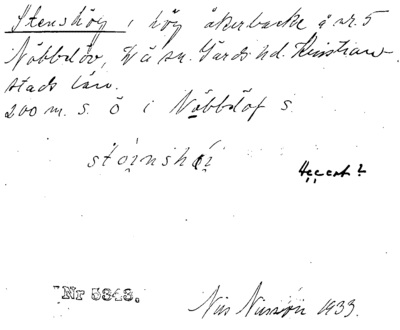 Stenshög, hög åkerbacke å nr. 5
Nöbbelöv, Vä sn. Gärds hd. Kristian-
stads län.
200 m. s. ö i Nöbbelöf s.
stöinshöi
Nr 5848.
Nils Nilsson 1933.